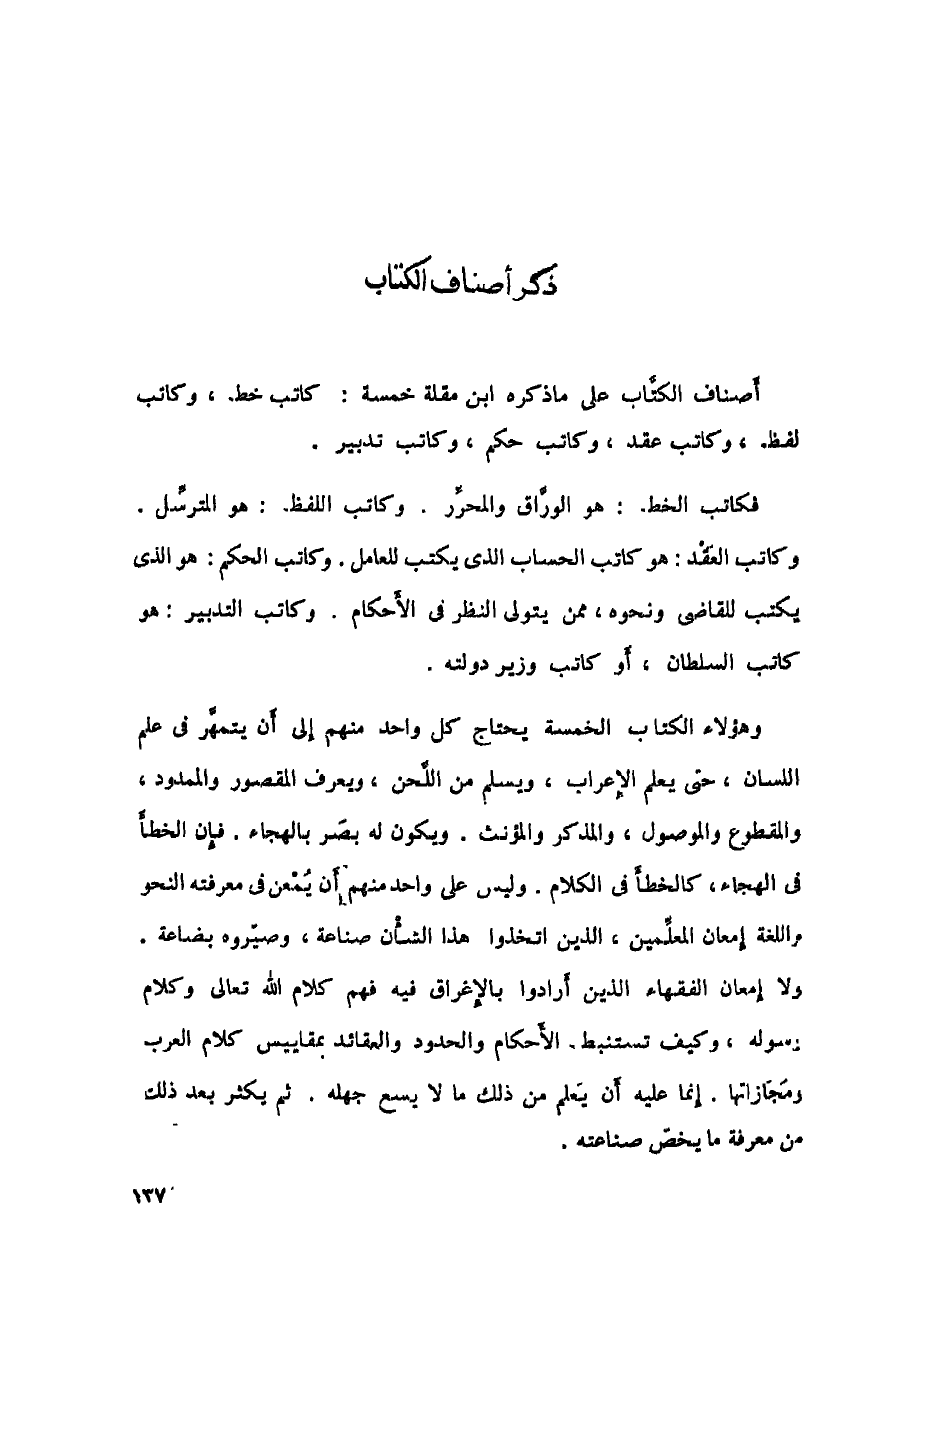 ذكر أصناف الكتاب
أَصناف الكتَّاب على ماذكره ابن مقلة خمسة : كاتب خط ، وكاتب
لفظ ، وكاتب عقد ، وكاتب حكم ، وكاتب تدبير .
فكاتب الخط : هو الورَّاق والمحرِّر . وكاتب اللفظ : هو المترسِّل .
وكاتب العَقْد : هو كاتب الحساب الذى يكتب للعامل . وكاتب الحكم : هو الذى
يكتب للقاضى ونحوه ، ممن يتولى النظر فى الأَحكام . وكاتب التدبير : هو
كاتب السلطان ، أَو كاتب وزير دولته .
وهؤلاء الكتاب الخمسة يحتاج كل واحد منهم إلى أَن يتمهَّر فى علم
اللسان ، حتى يعلم الإعراب ، ويسلم من اللَّحن ، ويعرف المقصور والممدود ،
والمقطوع والموصول ، والمذكر والمؤنث . ويكون له بصَر بالهجاء . فإن الخطأَ
فى الهجاء ، كالخطأَ فى الكلام . وليس على واحد منهم أَن يُمْعن فى معرفته النحو
واللغة إمعان المعلِّمين ، الذين اتخذوا هذا الشأْن صناعة ، وصيّروه بضاعة .
ولا إمعان الفقهاء الذين أَرادوا بالإغراق فيه فهم كلام الله تعالى وكلام
رسوله ، وكيف تستنبط الأَحكام والحدود والعقائد بمقاييس كلام العرب
ومَجَازاتها . إنما عليه أَن يَعلم من ذلك ما لا يسع جهله . ثم يكثر بعد ذلك
من معرفة ما يخصّ صناعته .
١٣٧